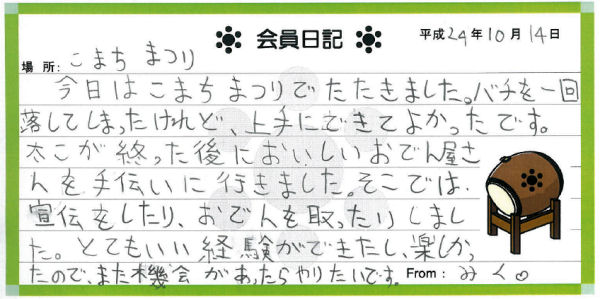 会員日記
平成24年10月14日
場所：こまち まつり
今日はこまちまつりでたたきました。バチを一回
落してしまったけれど、上手にできてよかったです。
太こが終った後においしいおでん屋さ
んを手伝いに行きました。そこでは、
宣伝をしたり、おでんを取ったりしまし
た。とてもいい経験ができたし、楽しかっ
たので、また機会があったらやりたいです。 From：みく。